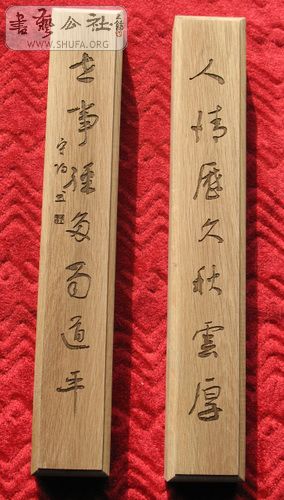 書藝公社
WWW.SHUFA.ORG
人情歷久秋雲厚
世事經多蜀道平